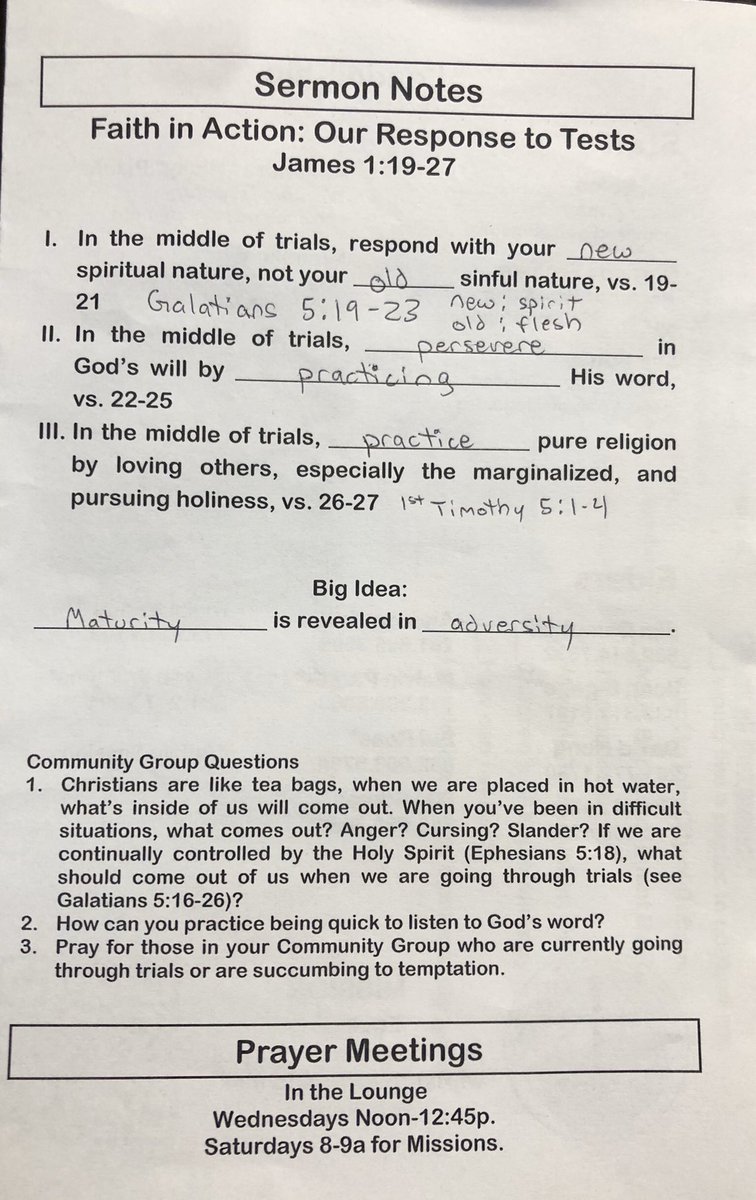 Sermon Notes
Faith in Action: Our Response to Tests
James 1:19-27
I. In the middle of trials, respond with your new
spiritual nature, not your old sinful nature, vs. 19-
21 Galatians 5:19-23 new: spirit
old: flesh
II. In the middle of trials, persevere in
God's will by practicing His word,
vs. 22-25
III. In the middle of trials, practice pure religion
by loving others, especially the marginalized, and
pursuing holiness, vs. 26-27 1st Timothy 5:1-4
Big Idea:
Maturity is revealed in adversity.
Community Group Questions
1. Christians are like tea bags, when we are placed in hot water,
what's inside of us will come out. When you've been in difficult
situations, what comes out? Anger? Cursing? Slander? If we are
continually controlled by the Holy Spirit (Ephesians 5:18), what
should come out of us when we are going through trials (see
Galatians 5:16-26)?
2. How can you practice being quick to listen to God's word?
3. Pray for those in your Community Group who are currently going
through trials or are succumbing to temptation.
Prayer Meetings
In the Lounge
Wednesdays Noon-12:45p.
Saturdays 8-9a for Missions.